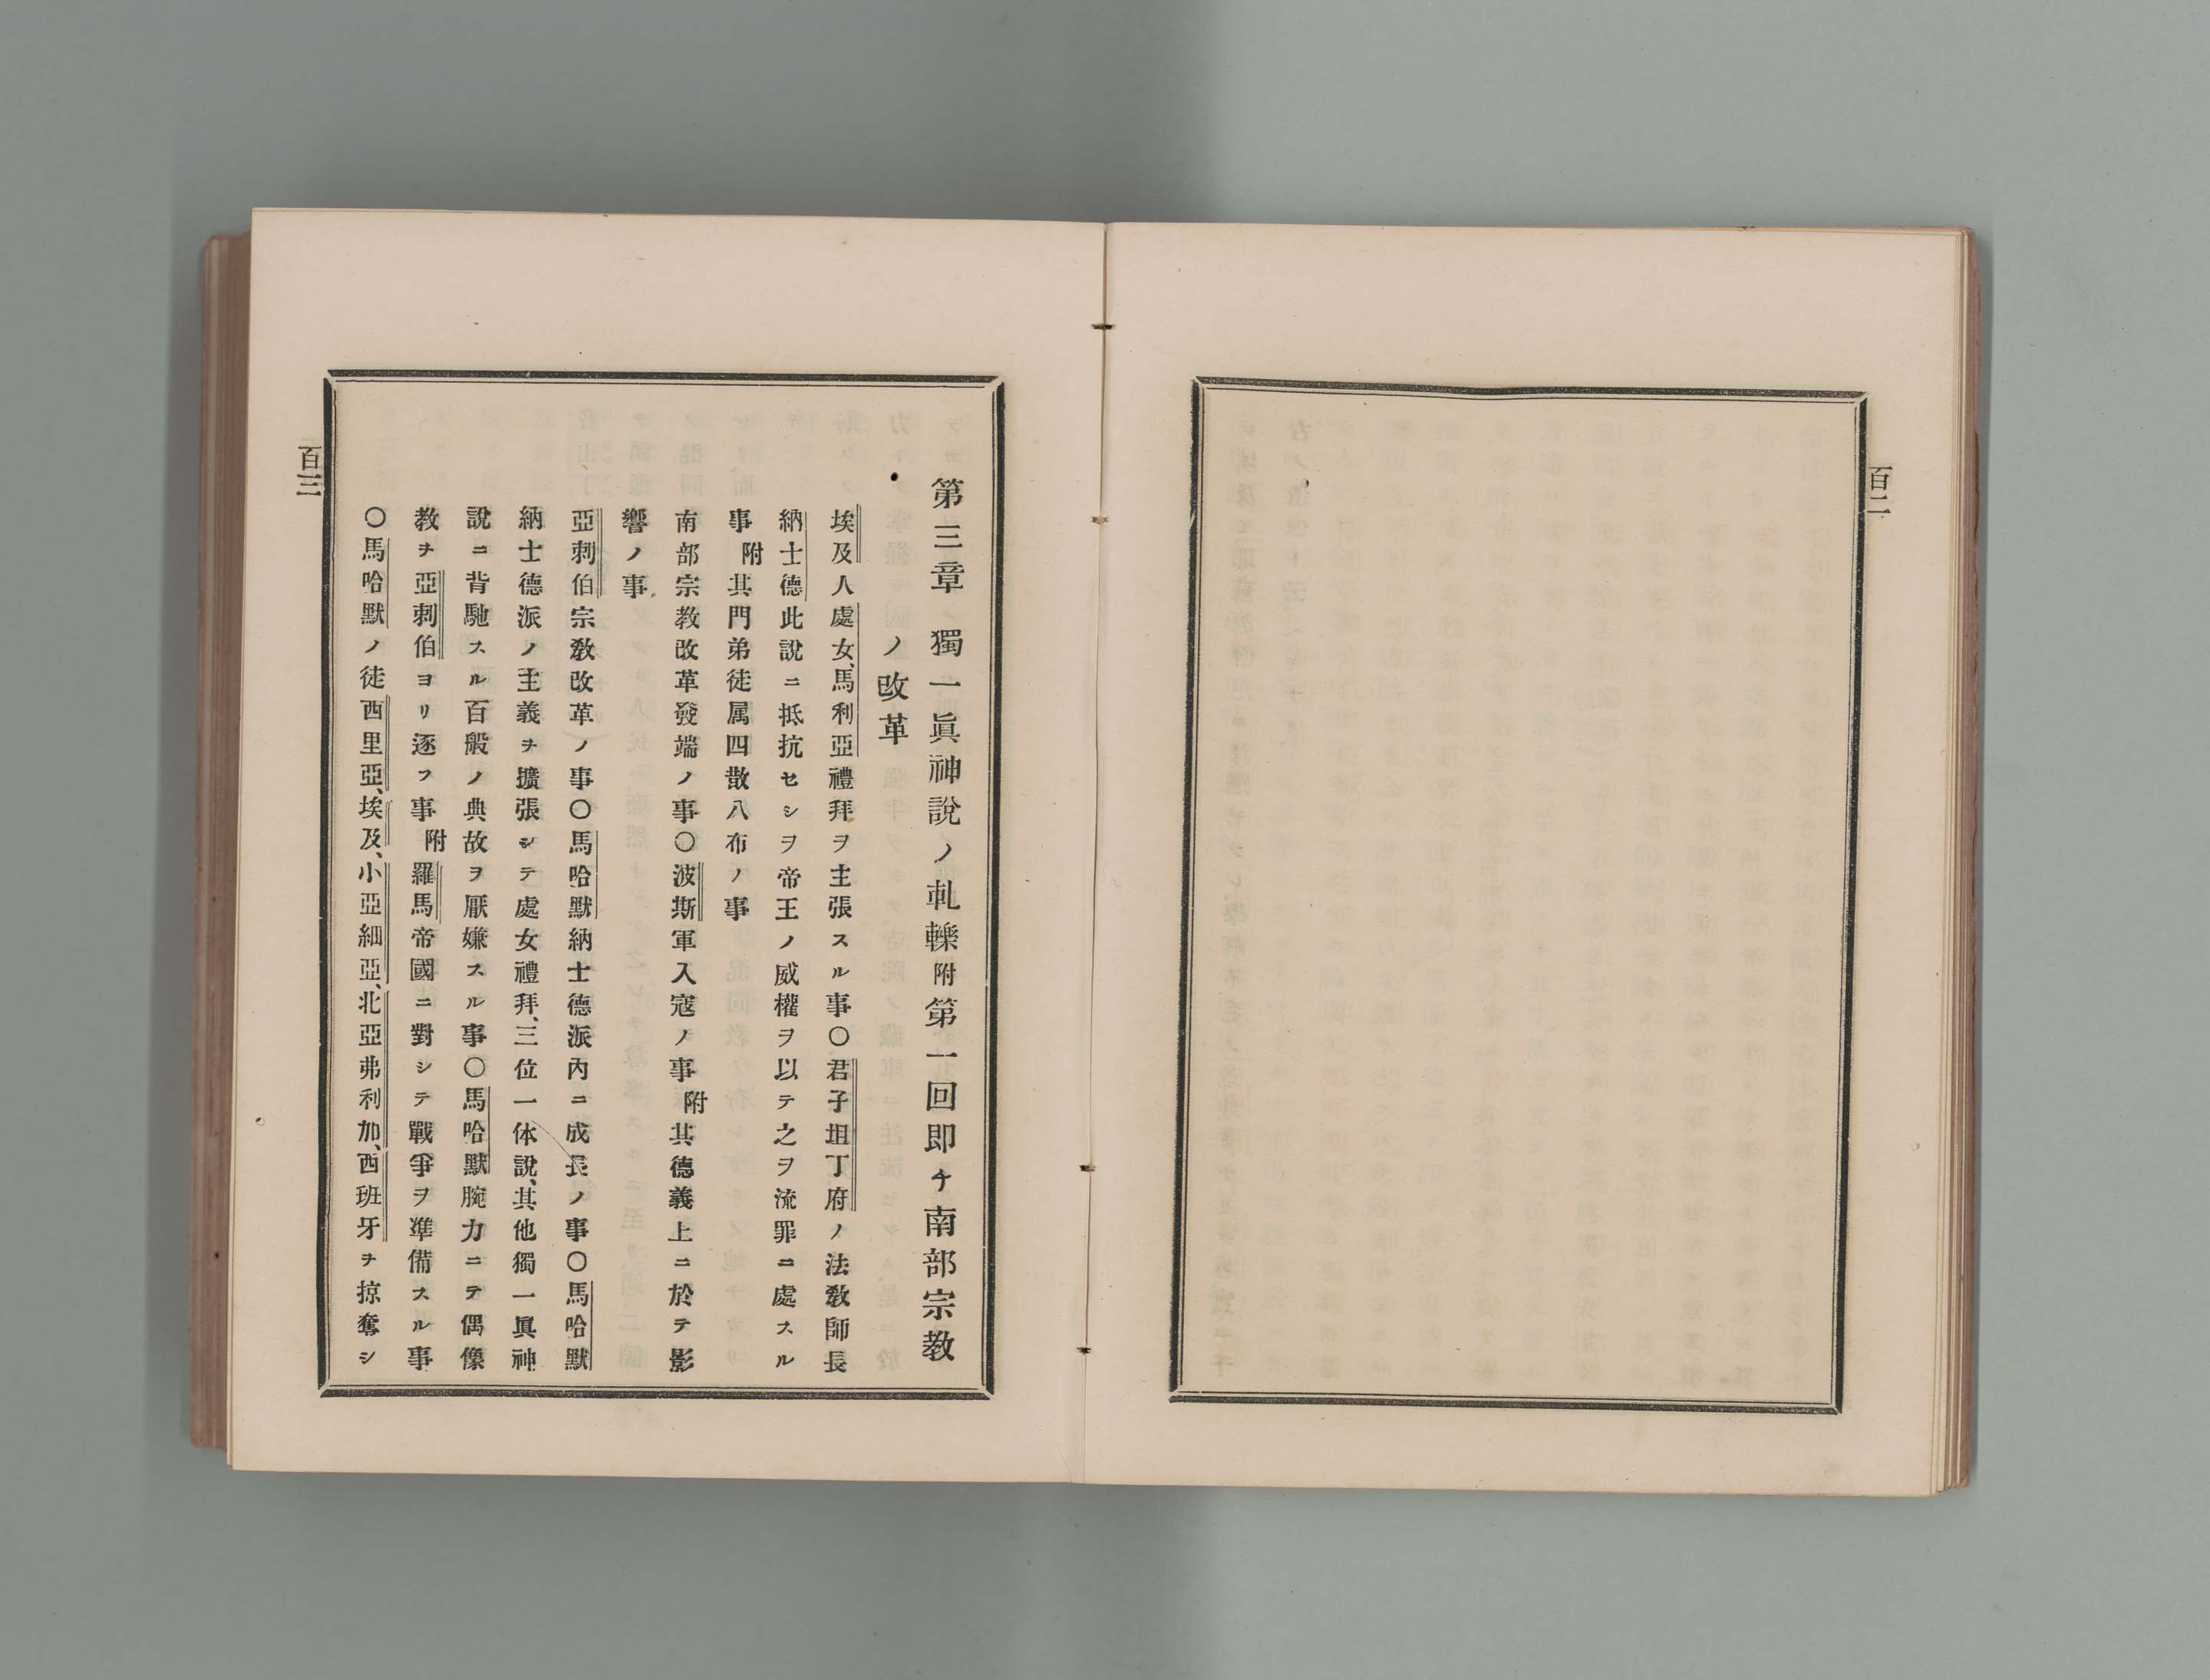 百二
第三章 獨一眞神說ノ軋轢附第一回即チ南部宗敎
ノ改革
埃及人處女、馬利亞禮拜ヲ主張スル事〇君子坦丁府ノ法敎師長
納士德此說ニ抵抗セシヲ帝王ノ威權ヲ以テ之ヲ流罪ニ處スル
事附其門弟徒属四散八布ノ事
南部宗敎改革發端ノ事〇波斯軍入寇ノ事附其德義上ニ於テ影
響ノ事
亞刺伯宗敎改革ノ事〇馬哈默納士德派內ニ成長ノ事〇馬哈默
納士德派ノ主義ヲ擴張シテ處女禮拜、三位一体說、其他獨一眞神
說ニ背馳スル百般ノ典故ヲ厭嫌スル事〇馬哈默腕力ニテ偶像
敎ヲ亞刺伯ヨリ逐フ事附羅馬帝國ニ對シテ戰爭ヲ準備スル事
〇馬哈默ノ徒西里亞、埃及、小亞細亞、北亞弗利加、西班牙ヲ掠奪シ
百三